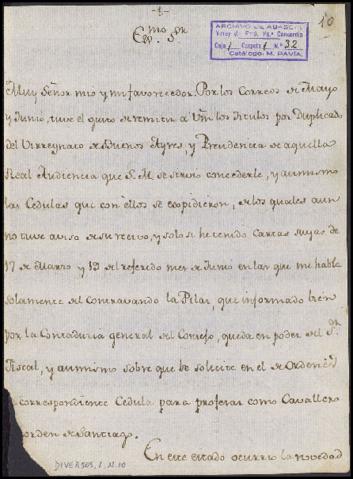 -1-
10
Exmo. Sr.
ARCHIVO DE ABASCAL
Caja 1 Carpeta 1 N.º 32
Catálogo: M. PAVÍA.
Muy Señor mio y mi favorecedor. Por los Correos de Mayo
y Junio, tuve el gusto de remitir a Vm los titulos por Duplicado
del Virreynato de Buenos Ayres, y Presidencia de aquella
Real Audiencia que S.M. se sirvió concederle, y asimismo
las Cedulas que con ellos se expidieron, de los quales aun
no tuve aviso de su recivo, y solo si he tenido Cartas suyas de
17 de Marzo y 12 del referido mes de Junio en las que me habla
solamente del Contravando la Pilar que informado bien
por la Contaduria general del Consejo, queda en poder del Sr.
Fiscal, y asimismo sobre que se solicite en el de Ordenes
correspondiente Cedula para profesar como Cavallero
orden de Santiago.
En este estado ocurrio la novedad
DIVERSOS, 1, N. 10